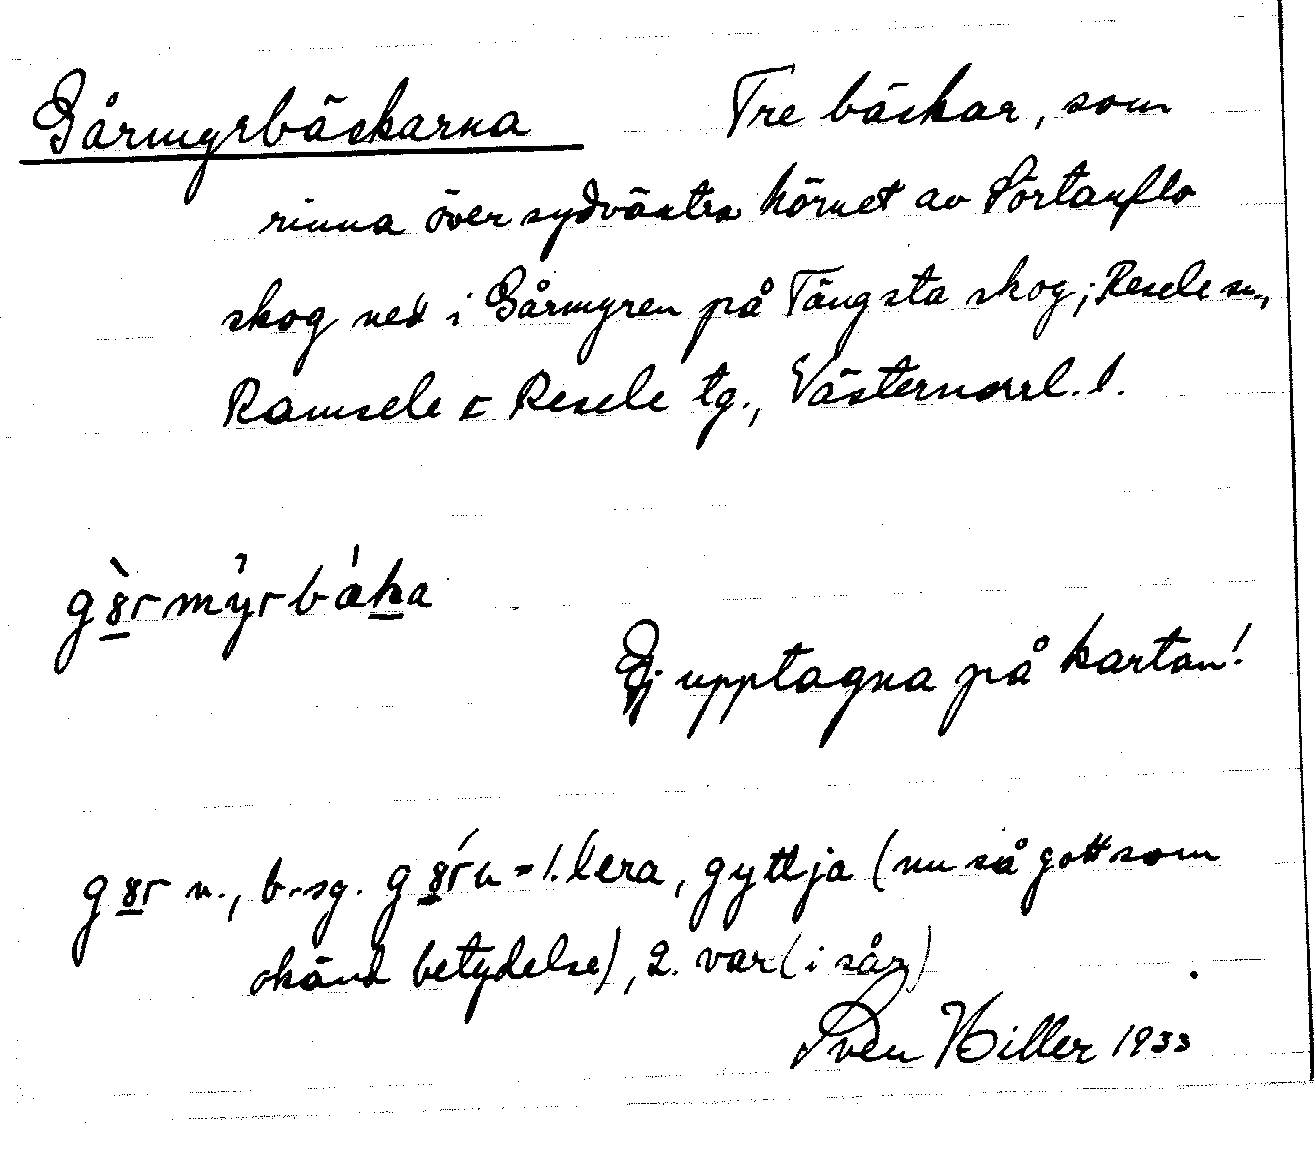 Gårmyrbäckarna Tre bäckar, som
rinna över sydvästra hörnet av Törtanflo
skog ned i Gårmyren på Tängsta skog; Resele sn,
Ramsele o Resele tg., Västernorrl. l.
gò̱rmỳrbáḵa
Ej upptagna på kartan!
go̱r n., b. sg. gó̱rn = 1. lera, gyttja (nu så gott som
okänd betydelse), 2. var (i sår)
Sven Hiller 1933